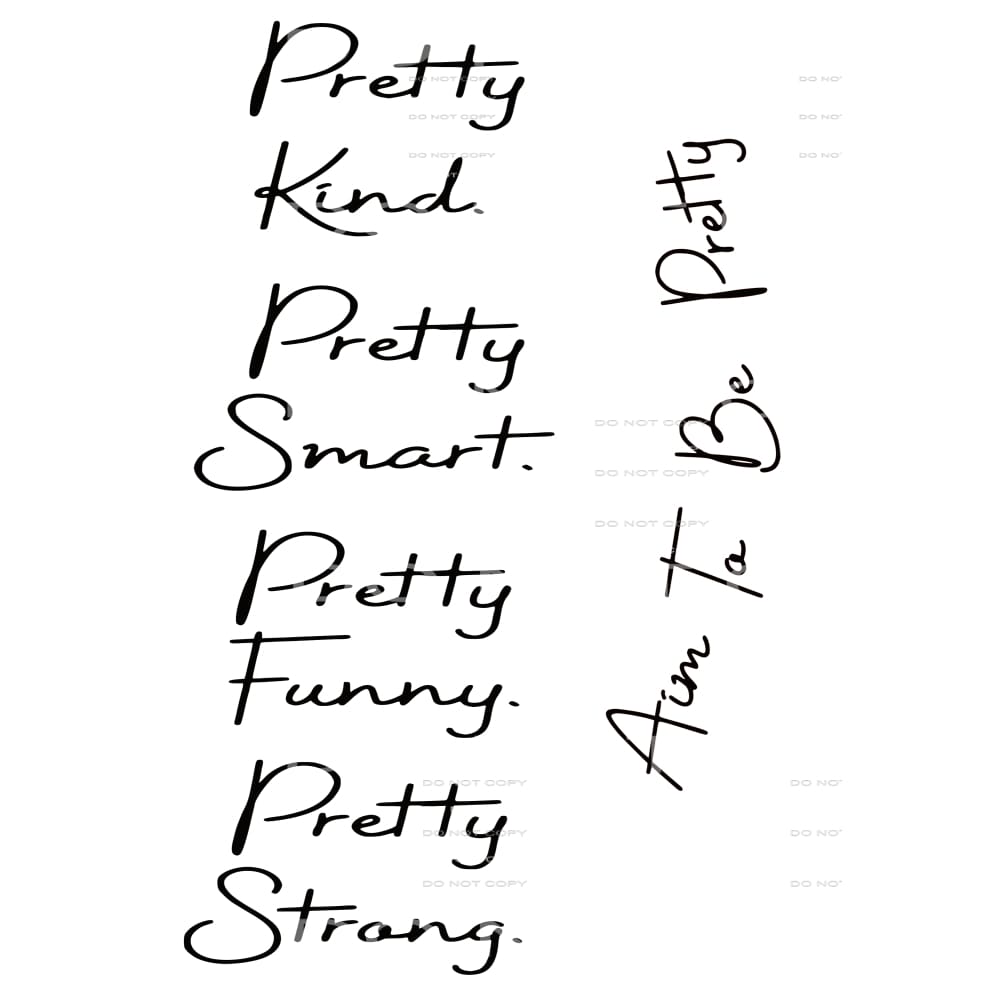 Pretty
Kind.
Pretty
Smart.
Pretty
Funny.
Pretty
Strong.
Aim To Be Pretty
DO NOT COPY
DO NOT COPY
DO NOT COPY
DO NO
DO NO
DO NO
DO NOT COPY
DO NOT COPY
DO NOT COPY
DO NOT COPY
DO NOT COPY
DO NOT COPY
DO NO
DO NO
DO NO